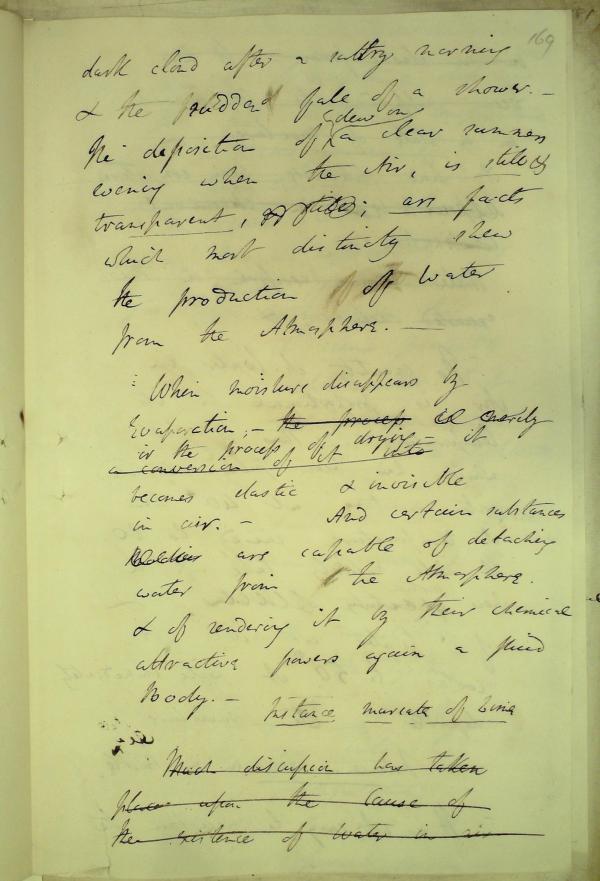 169
dark cloud after a sultry morning
& the sudden fale of a shower. —
The deposition of dew on a clear summers
evening when the Air, is still &
transparent, are facts
which most distinctly shew
the production of Water
from the Atmosphere. —
When moisture disappears by
Evaporation, — the process is merely
in the process of drying it
a conversion of it into
becomes elastic & invisible
in air. — And certain substances
bodies are capable of detaching
water from the Atmosphere.
& of rendering it by their chemical
attractive powers again a fluid
Body. — Instance muriate of Lime
Much discussion has taken
place upon the cause of
the existence of water in air